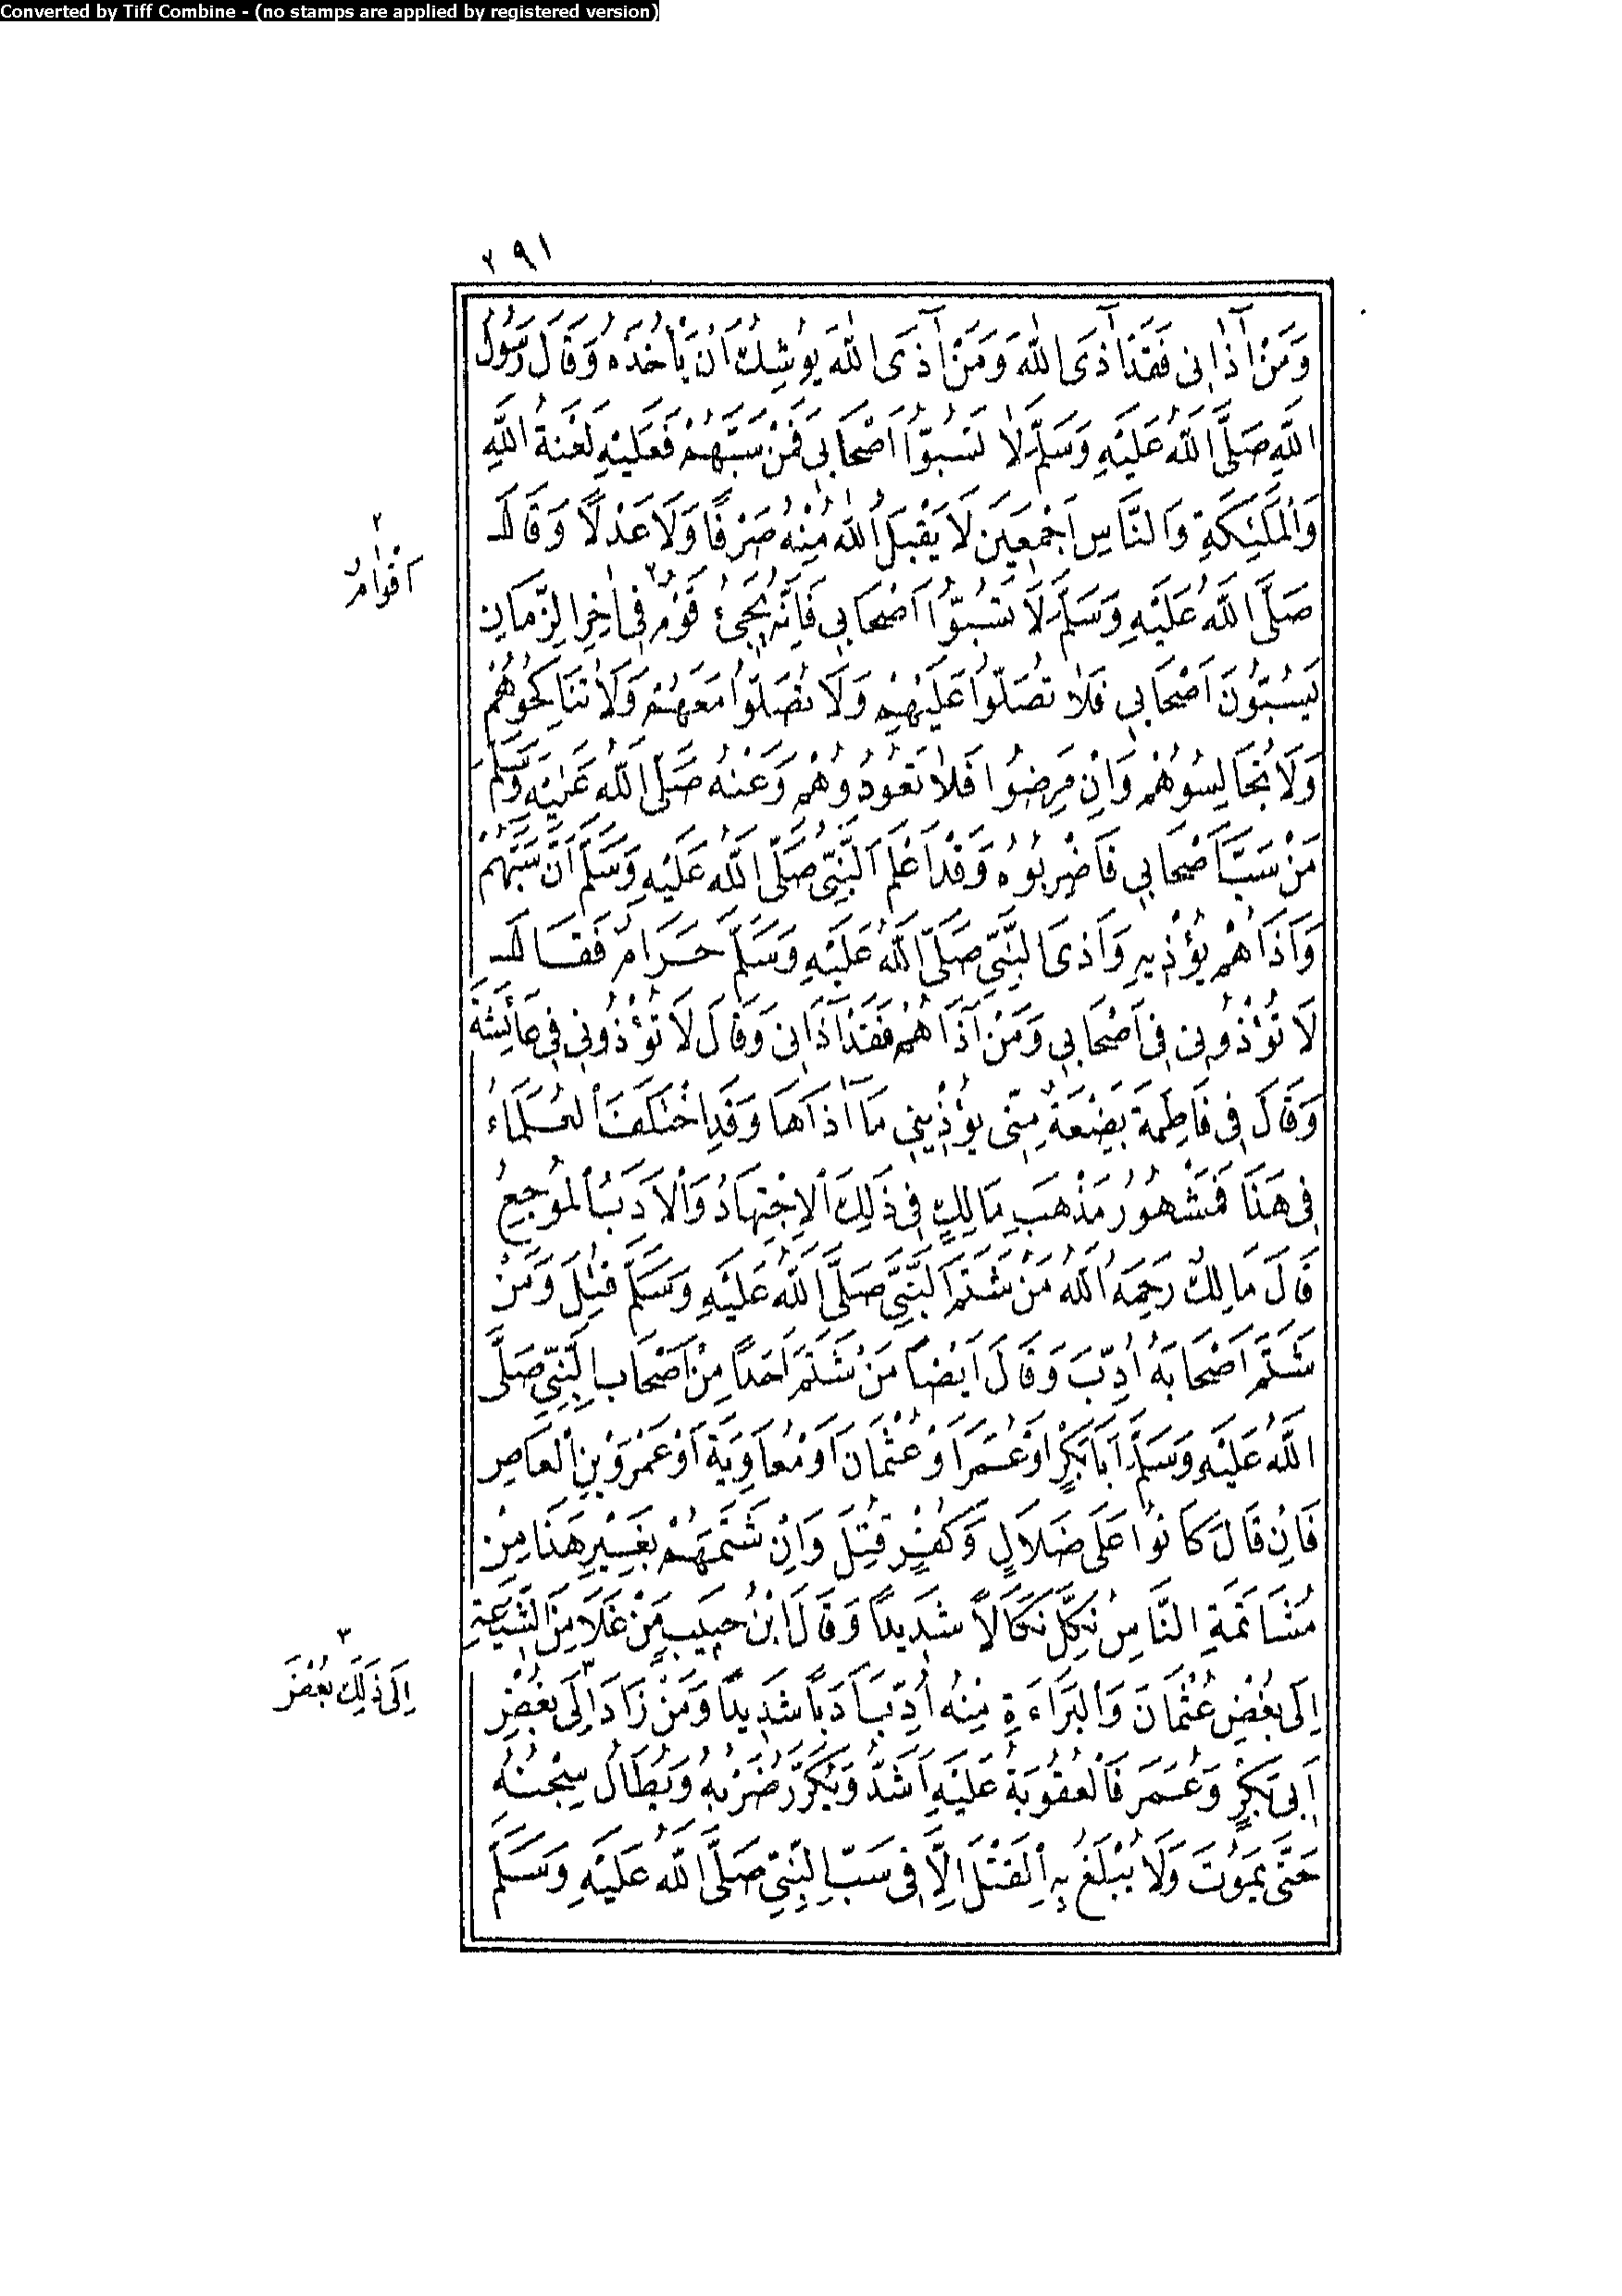 Converted by Tiff Combine - (no stamps are applied by registered version)
٢٩١
وَمَنْ آذَانِى فَقَدْ آذَى اللهَ وَمَنْ آذَى اللهَ يُوشِكُ أَنْ يَأْخُذَهُ وَقَالَ رَسُولُ
اللهِ صَلَّى اللهُ عَلَيْهِ وَسَلَّمَ لَا تَسُبُّوا أَصْحَابِى فَمَنْ سَبَّهُمْ فَعَلَيْهِ لَعْنَةُ اللهِ
وَالْمَلَئِكَةِ وَالنَّاسِ أَجْمَعِينَ لَا يَقْبَلُ اللهُ مِنْهُ صَرْفًا وَلَا عَدْلًا وَقَالَ
صَلَّى اللهُ عَلَيْهِ وَسَلَّمَ لَا تَسُبُّوا أَصْحَابِى فَإِنَّهُ يَجِئُ قَوْمٌ ٢ فِى آخِرِ الزَّمَانِ
يَسُبُّونَ أَصْحَابِى فَلَا تُصَلُّوا عَلَيْهِمْ وَلَا تُصَلُّوا مَعَهُمْ وَلَا تُنَاكِحُوهُمْ
وَلَا تُجَالِسُوهُمْ وَإِنْ مَرِضُوا فَلَا تَعُودُوهُمْ وَعَنْهُ صَلَّى اللهُ عَلَيْهِ وَسَلَّمَ
مَنْ سَبَّ أَصْحَابِى فَاضْرِبُوهُ وَقَدْ أَعْلَمَ النَّبِىُّ صَلَّى اللهُ عَلَيْهِ وَسَلَّمَ أَنَّ سَبَّهُمْ
وَأَذَاهُمْ يُؤْذِيهِ وَأَذَى النَّبِىِّ صَلَّى اللهُ عَلَيْهِ وَسَلَّمَ حَرَامٌ فَقَالَ
لَا تُؤْذُونِى فِى أَصْحَابِى وَمَنْ آذَاهُمْ فَقَدْ آذَانِى وَقَالَ لَا تُؤْذُونِى فِى عَائِشَةَ
وَقَالَ فِى فَاطِمَةَ بَضْعَةٌ مِنِّى يُؤْذِينِى مَا آذَاهَا وَقَدِ اخْتَلَفَ الْعُلَمَاءُ
فِى هَذَا فَمَشْهُورُ مَذْهَبِ مَالِكٍ فِى ذَلِكَ الْاِجْتِهَادُ وَالْأَدَبُ الْمُوجِعُ
قَالَ مَالِكٌ رَحِمَهُ اللهُ مَنْ شَتَمَ النَّبِىَّ صَلَّى اللهُ عَلَيْهِ وَسَلَّمَ قُتِلَ وَمَنْ
شَتَمَ أَصْحَابَهُ أُدِّبَ وَقَالَ أَيْضًا مَنْ شَتَمَ أَحَدًا مِنْ أَصْحَابِ النَّبِىِّ صَلَّى
اللهُ عَلَيْهِ وَسَلَّمَ أَبَا بَكْرٍ أَوْ عُمَرَ أَوْ عُثْمَانَ أَوْ مُعَاوِيَةَ أَوْ عَمْرَو بْنَ الْعَاصِ
فَإِنْ قَالَ كَانُوا عَلَى ضَلَالٍ وَكُفْرٍ قُتِلَ وَإِنْ شَتَمَهُمْ بِغَيْرِ هَذَا مِنْ
مُشَاتَمَةِ النَّاسِ نُكِّلَ نَكَالًا شَدِيدًا وَقَالَ ابْنُ حَبِيبٍ مَنْ غَلَا مِنَ الشِّيعَةِ
إِلَى بُغْضِ عُثْمَانَ وَالْبَرَاءَةِ مِنْهُ أُدِّبَ أَدَبًا شَدِيدًا وَمَنْ زَادَ ٣ إِلَى بُغْضِ
أَبِى بَكْرٍ وَعُمَرَ فَالْعُقُوبَةُ عَلَيْهِ أَشَدُّ وَيُكَرَّرُ ضَرْبُهُ وَيُطَالُ سِجْنُهُ
حَتَّى يَمُوتَ وَلَا يُبْلَغُ بِهِ الْقَتْلَ إِلَّا فِى سَبِّ النَّبِىِّ صَلَّى اللهُ عَلَيْهِ وَسَلَّمَ
٢
أَقْوَامٌ
٣
إِلَى ذَلِكَ بُغْضَ